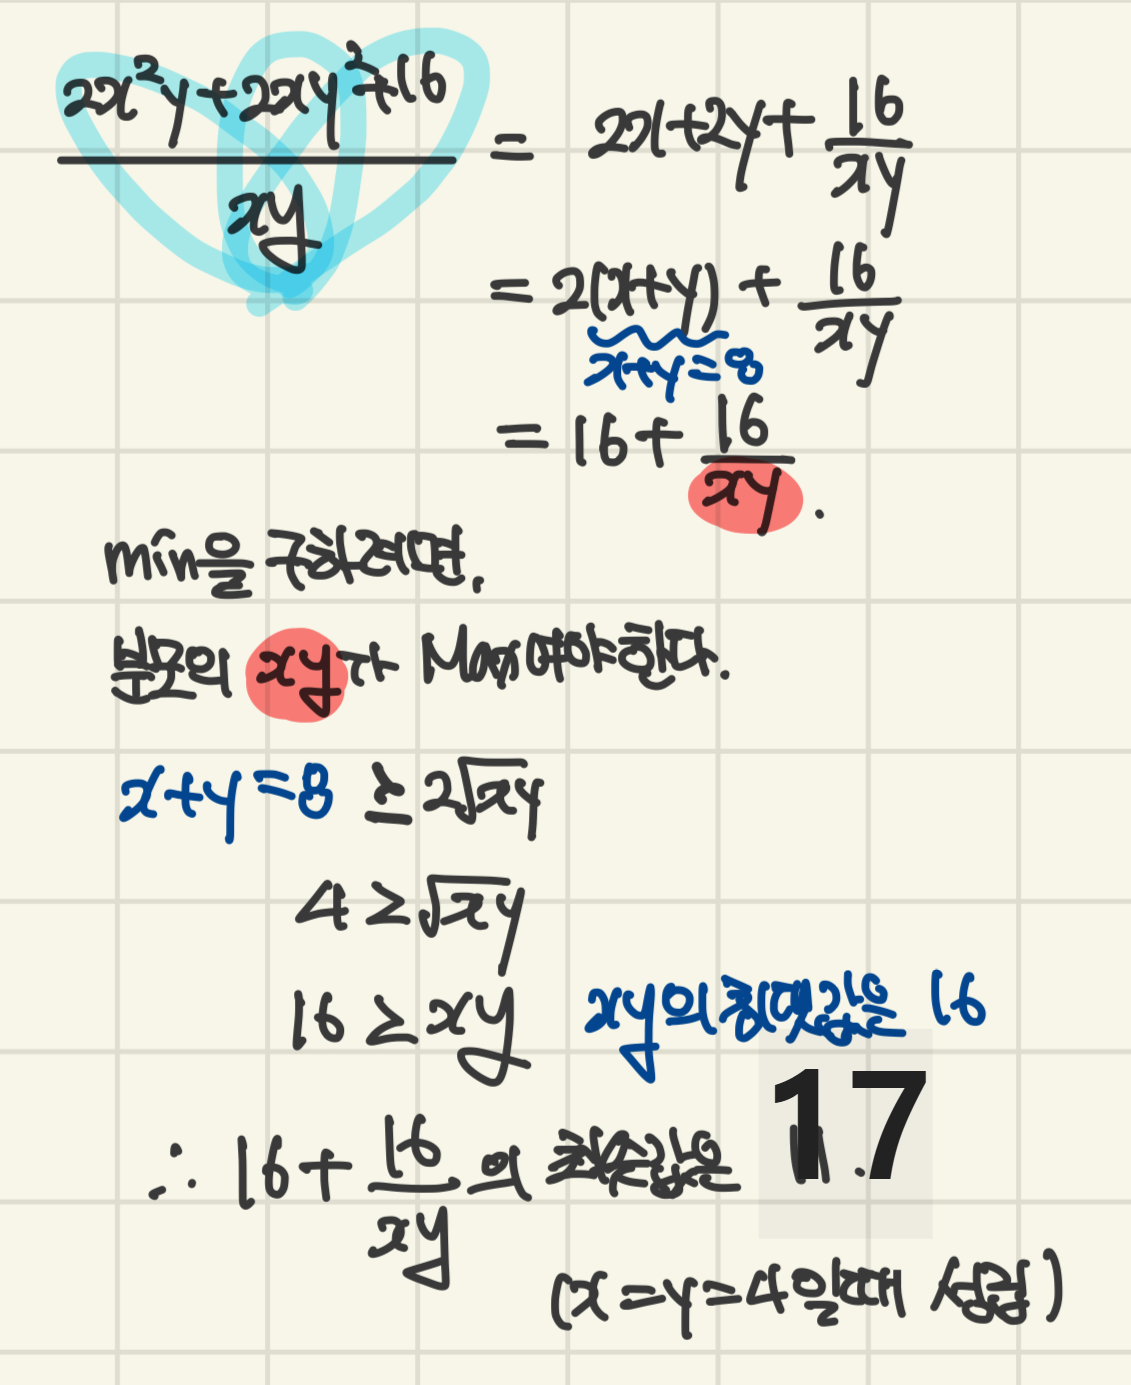 (2x²y+2xy²+16)/xy = 2x+2y+16/xy
= 2(x+y) + 16/xy
x+y=8
= 16+16/xy.
min을 구하려면.
분모의 xy가 Max여야 한다.
x+y=8 ≥ 2√xy
4 ≥ √xy
16 ≥ xy xy의 최댓값은 16
∴ 16+16/xy의 최솟값은 17
(x=y=4일때 성립)